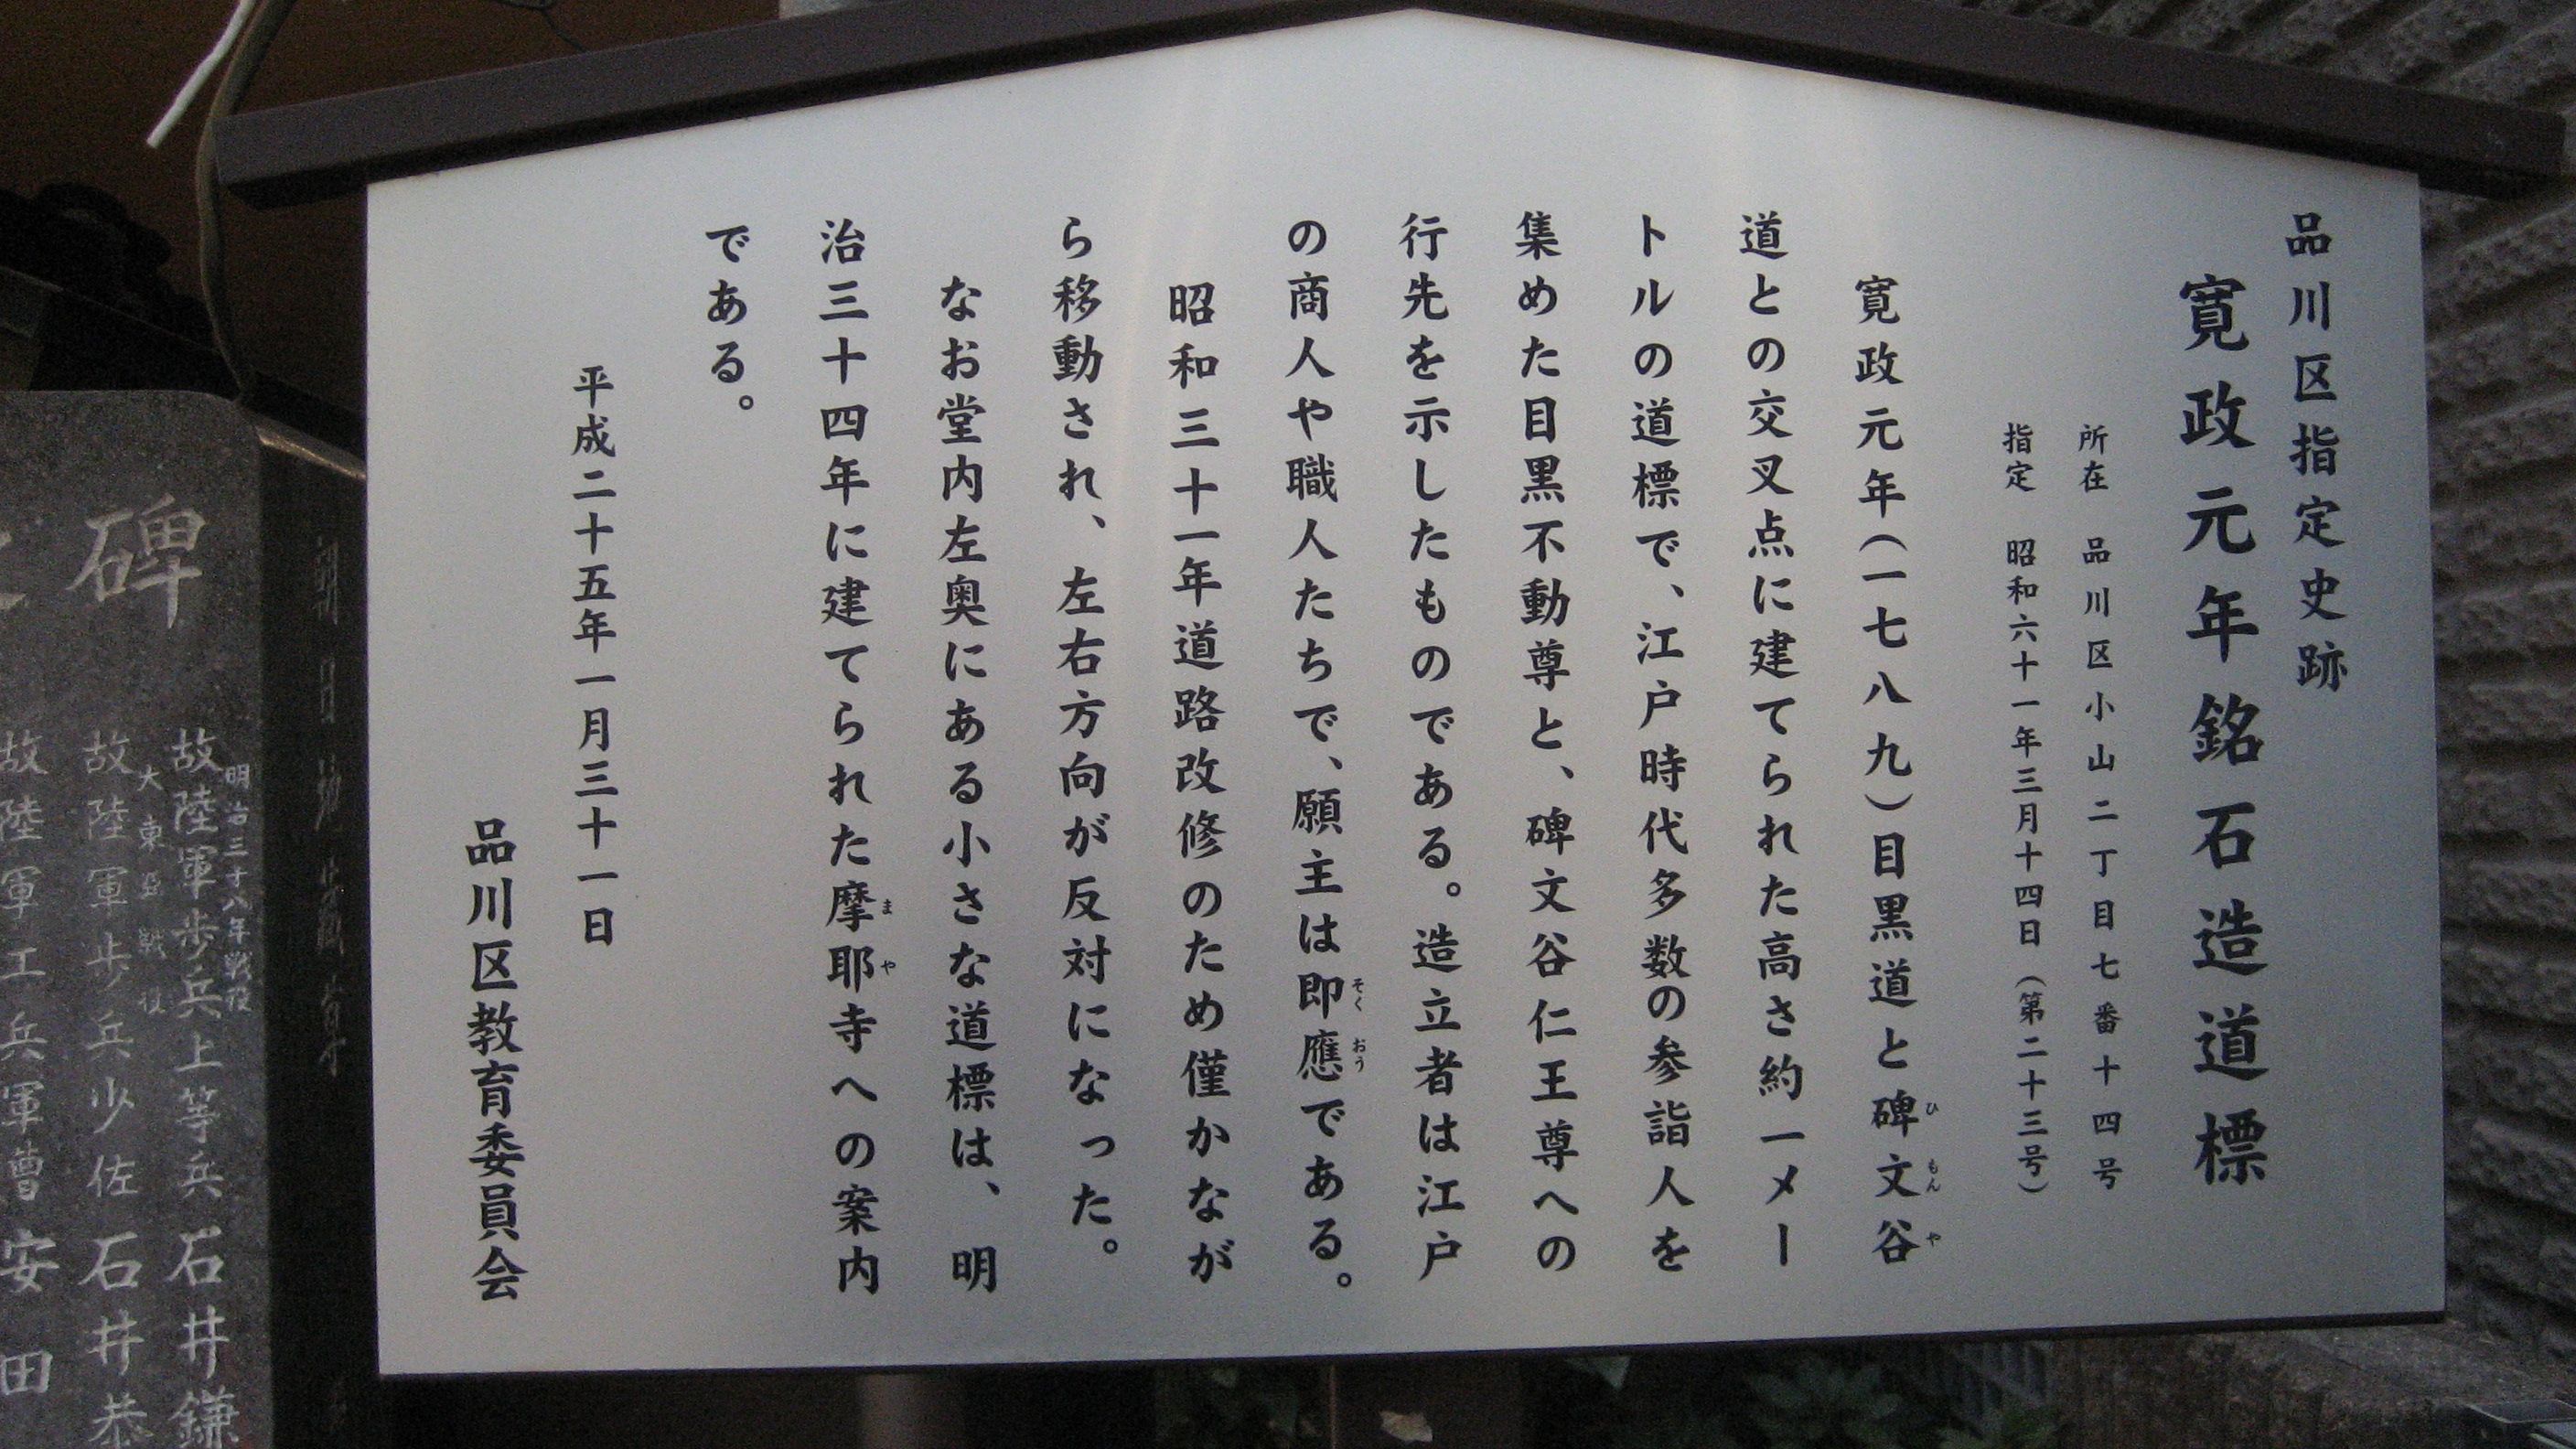 品川区指定史跡
寛政元年銘石造道標
所在 品川区小山二丁目七番十四号
指定 昭和六十一年三月十四日（第二十三号）
寛政元年（一七八九）目黒道と碑文谷
ひ もん や
道との交叉点に建てられた高さ約一メー
トルの道標で、江戸時代多数の参詣人を
集めた目黒不動尊と、碑文谷仁王尊への
行先を示したものである。造立者は江戸
の商人や職人たちで、願主は即應である。
そく おう
昭和三十一年道路改修のため僅かなが
ら移動され、左右方向が反対になった。
なお堂内左奥にある小さな道標は、明
治三十四年に建てられた摩耶寺への案内
ま や
である。
平成二十五年一月三十一日
品川区教育委員会
朝日地蔵尊
碑
明治三十八年戦役
故陸軍歩兵上等兵 石井鎌
大東亞戦役
故陸軍歩兵少佐 石井恭
故陸軍工兵軍曹 安田